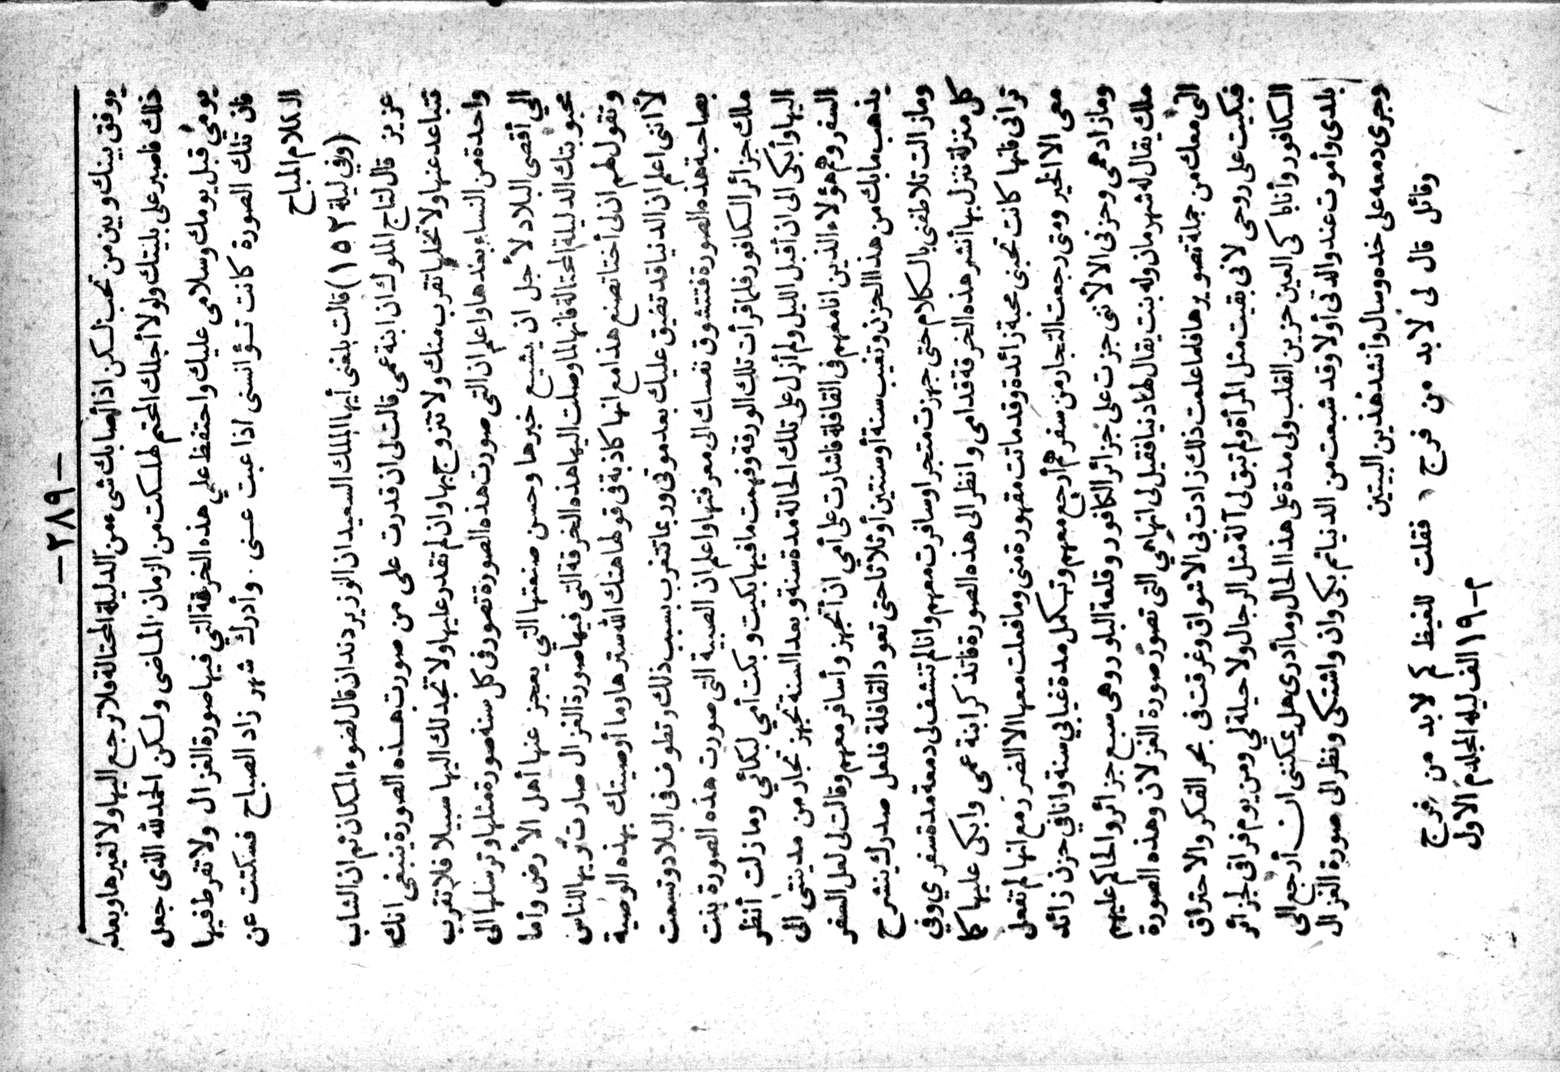 — ٢٨٩ —
يوفق بينك وبين من تحب لكن اذا أصابك شيء من الدليلة المحتالة فلا ترجع اليها ولا لغيرها وبعد
ذلك فاصبر على بليتك ولولا أجلك المحتم لهلكت من الزمان الماضي ولكن الحمد لله الذي جعل
يومي قبل يومك وسلامي عليك واحتفظ على هذه الخرقة التي فيها صورة الغزال ولا تفرط فيها
فان تلك الصورة كانت تؤانسني اذا غبت عني . وأدرك شهر زاد الصباح فسكتت عن
الكلام المباح
(وفي ليلة ١٥٢) قالت بلغني أيها الملك السعيد ان الوزير دندان قال لضوء المكان ثم ان الشاب
عزيز قال لتاج الملوك ان ابنة عمي قالت لي ان قدرت على من صورت هذه الصورة ينبغي انك
تتباعد عنها ولا تخلها تقرب منك ولا تتزوج بها وان لم تقدر عليها ولا تجد لك اليها سبيلا فلا تقرب
واحدة من النساء بعدها واعلم ان التي صورت هذه الصورة تصور في كل سنة صورة مثلها وترسلها الى
الي أقصى البلاد لأجل ان يشيع خبرها وحسن صنعتها التي يعجز عنها أهل الأرض وأما
محبوبتك الدليلة المحتالة فانها لما وصلت اليها هذه الخرقة التي فيها صورة الغزال صارت تريها للناس
وتقول لهم ان لي أختا تصنع هذا مع انها كاذبة في قولها هتك الله سترها وما أوصيتك بهذه الوصية
لأ أنني اعلم ان الدنيا قد تضيق عليك بعد موتي وربما تتغرب بسبب ذلك وتطوف في البلاد وتسمع
بصاحبة هذه الصورة فتتشوق نفسك الى معرفتها واعلم ان الصبية التي صورت هذه الصورة بنت
ملك جزائر الكافور فلما قرأت تلك الورقة وفهمت ما فيها بكيت وبكت أمي لبكائي وما زلت أنظر
اليها وأبكي الى ان أقبل الليل ولم أزل على تلك الحالة مدة سنة وبعد السنة تجهز تجار من مدينتي الى
السفر وهم هؤلاء الذين انا معهم في القافلة فاشارت على أمي ان أتجهز وأسافر معهم وقالت لي لعل السفر
يذهب ما بك من هذا الحزن وتغيب سنة أو سنتين أو ثلاثا حتى تعود القافلة فلعل صدرك ينشرح
وما زالت تلاطفني بالكلام حتى جهزت متجرا وسافرت معهم وانا لم تنشف لي دمعة مدة سفري وفي
كل منزلة ننزل بها أنشر هذه الخرقة قدامي وانظر الى هذه الصورة فاتذكر ابنة عمي وابكي عليها كما
تراني فانها كانت تحبني محبة زائدة وقد ماتت مقهورة مني وما فعلت معها الا الضرر مع انها لم تفعل
معى الا الخير ومتى رجعت التجار من سفرهم أرجع معهم وتكمل مدة غيابي سنة وانا في حزن زائد
وما زاد همى وحزنى الا لأننى جزت على جزائر الكافور وقلعة البلور وهي سبع جزائر والحاكم عليهم
ملك يقال له شهرمان وله بنت يقال لها دنيا فقيل لى انها هي التى تصور صورة الغزلان وهذه الصورة
التي معك من جملة تصويرها فلما علمت ذلك زادت بى الاشواق وغرقت فى بحر الفكر والاحتراق
فبكيت على روحى لأنى بقيت مثل المرأة ولم تبق لى آلة مثل الرجال ولا حيلة لي ومن يوم فراقى لجزائر
الكافور وأنا باكى العين حزين القلب ولى مدة على هذا الحال وما أدرى هل يمكننى ان أرجع الى
بلدى وأموت عند والدتى أولا وقد شبعت من الدنيا ثم بكى وان واشتكى ونظر الى صورة الغزال
وجرى دمعه على خده وسال وأنشد هذين البيتين
وقائل قال لى لابد من فرج * فقلت للغيظ كم لابد من فرج
م-١٩ الف ليلة المجلدم الاول